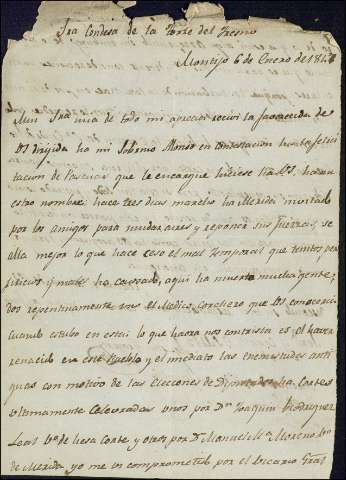 Sra Condesa de la Torre del Fresno
Montijo 6 de Enero de 184
Mui Sra mia de todo mi aprecio: recivi la favorecida de
VS dirijida ha mi Sobrino Alonso en contestacion ha la felici
tacion de Pascuas que le encargue hiciese ha VS. ha
estro nombre hace tres dias marcho ha Merida invitado
por los amigos para mudar aires y reponer sus fuerzas, se
alla mejor lo que hace ceso el mal temporal que tantos per
juicios y males ha causado, aqui ha muerto mucha gente;
dos repentinamente el Medico Cordero que VS. conoceria
cuando estubo en esta: lo que haora nos contrista es el haver
renacido en este Pueblo y el inmediato las enemistades anti
guas con motivo de las Elecciones de Diputados ha Cortes
ultimamente Celebradas unos por Dn Joaquin Rodriguez
Leal Vno de esa Corte y otros por D Manuel Ma Moreno Vno
de Merida yo me vi comprometido por el Vicario Gral